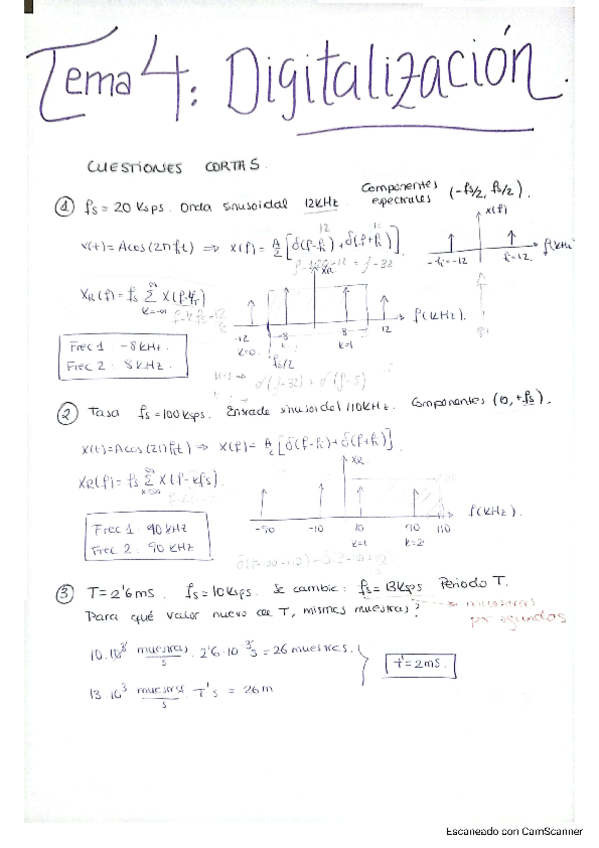 Tema 4: Digitalización.
CUESTIONES CORTAS.
① fs = 20 Ksps. Onda sinusoidal 12KHz. Componentes espectrales (-fs/2, fs/2).
x(t) = A cos(2πf₁t) ⇒ X(f) = A/2 [δ(f-f₁) + δ(f+f₁)].
X(f)
f(KHz)
-f₁=-12
f₁=12
XR(f) = fs Σ X(f-kfs)
k=-∞
XR
f(KHz).
-12
-8
8
12
k=0
k=1
fs/2
Frec 1: -8KHz.
Frec 2: 8KHz.
② Tasa fs = 100 Ksps. Entrada sinusoidal 110KHz. Componentes (0, +fs).
x(t) = A cos(2πf₁t) ⇒ X(f) = A/2 [δ(f-f₁) + δ(f+f₁)]
XR(f) = fs Σ X(f-kfs).
XR
f(KHz).
-90
-10
10
90
110
k=1
k=2
Frec 1: 90 KHz
Frec 2: 90 KHz
③ T = 2'6 ms. fs = 10Ksps. Se cambia: fs = 13Ksps Periodo T.
Para qué valor nuevo de T, mismas muestras? muestras
por segundos
10·10³ muestras/s · 2'6·10⁻³s = 26 muestras.
T' = 2ms.
13·10³ muestras/s T's = 26m
Escaneado con CamScanner